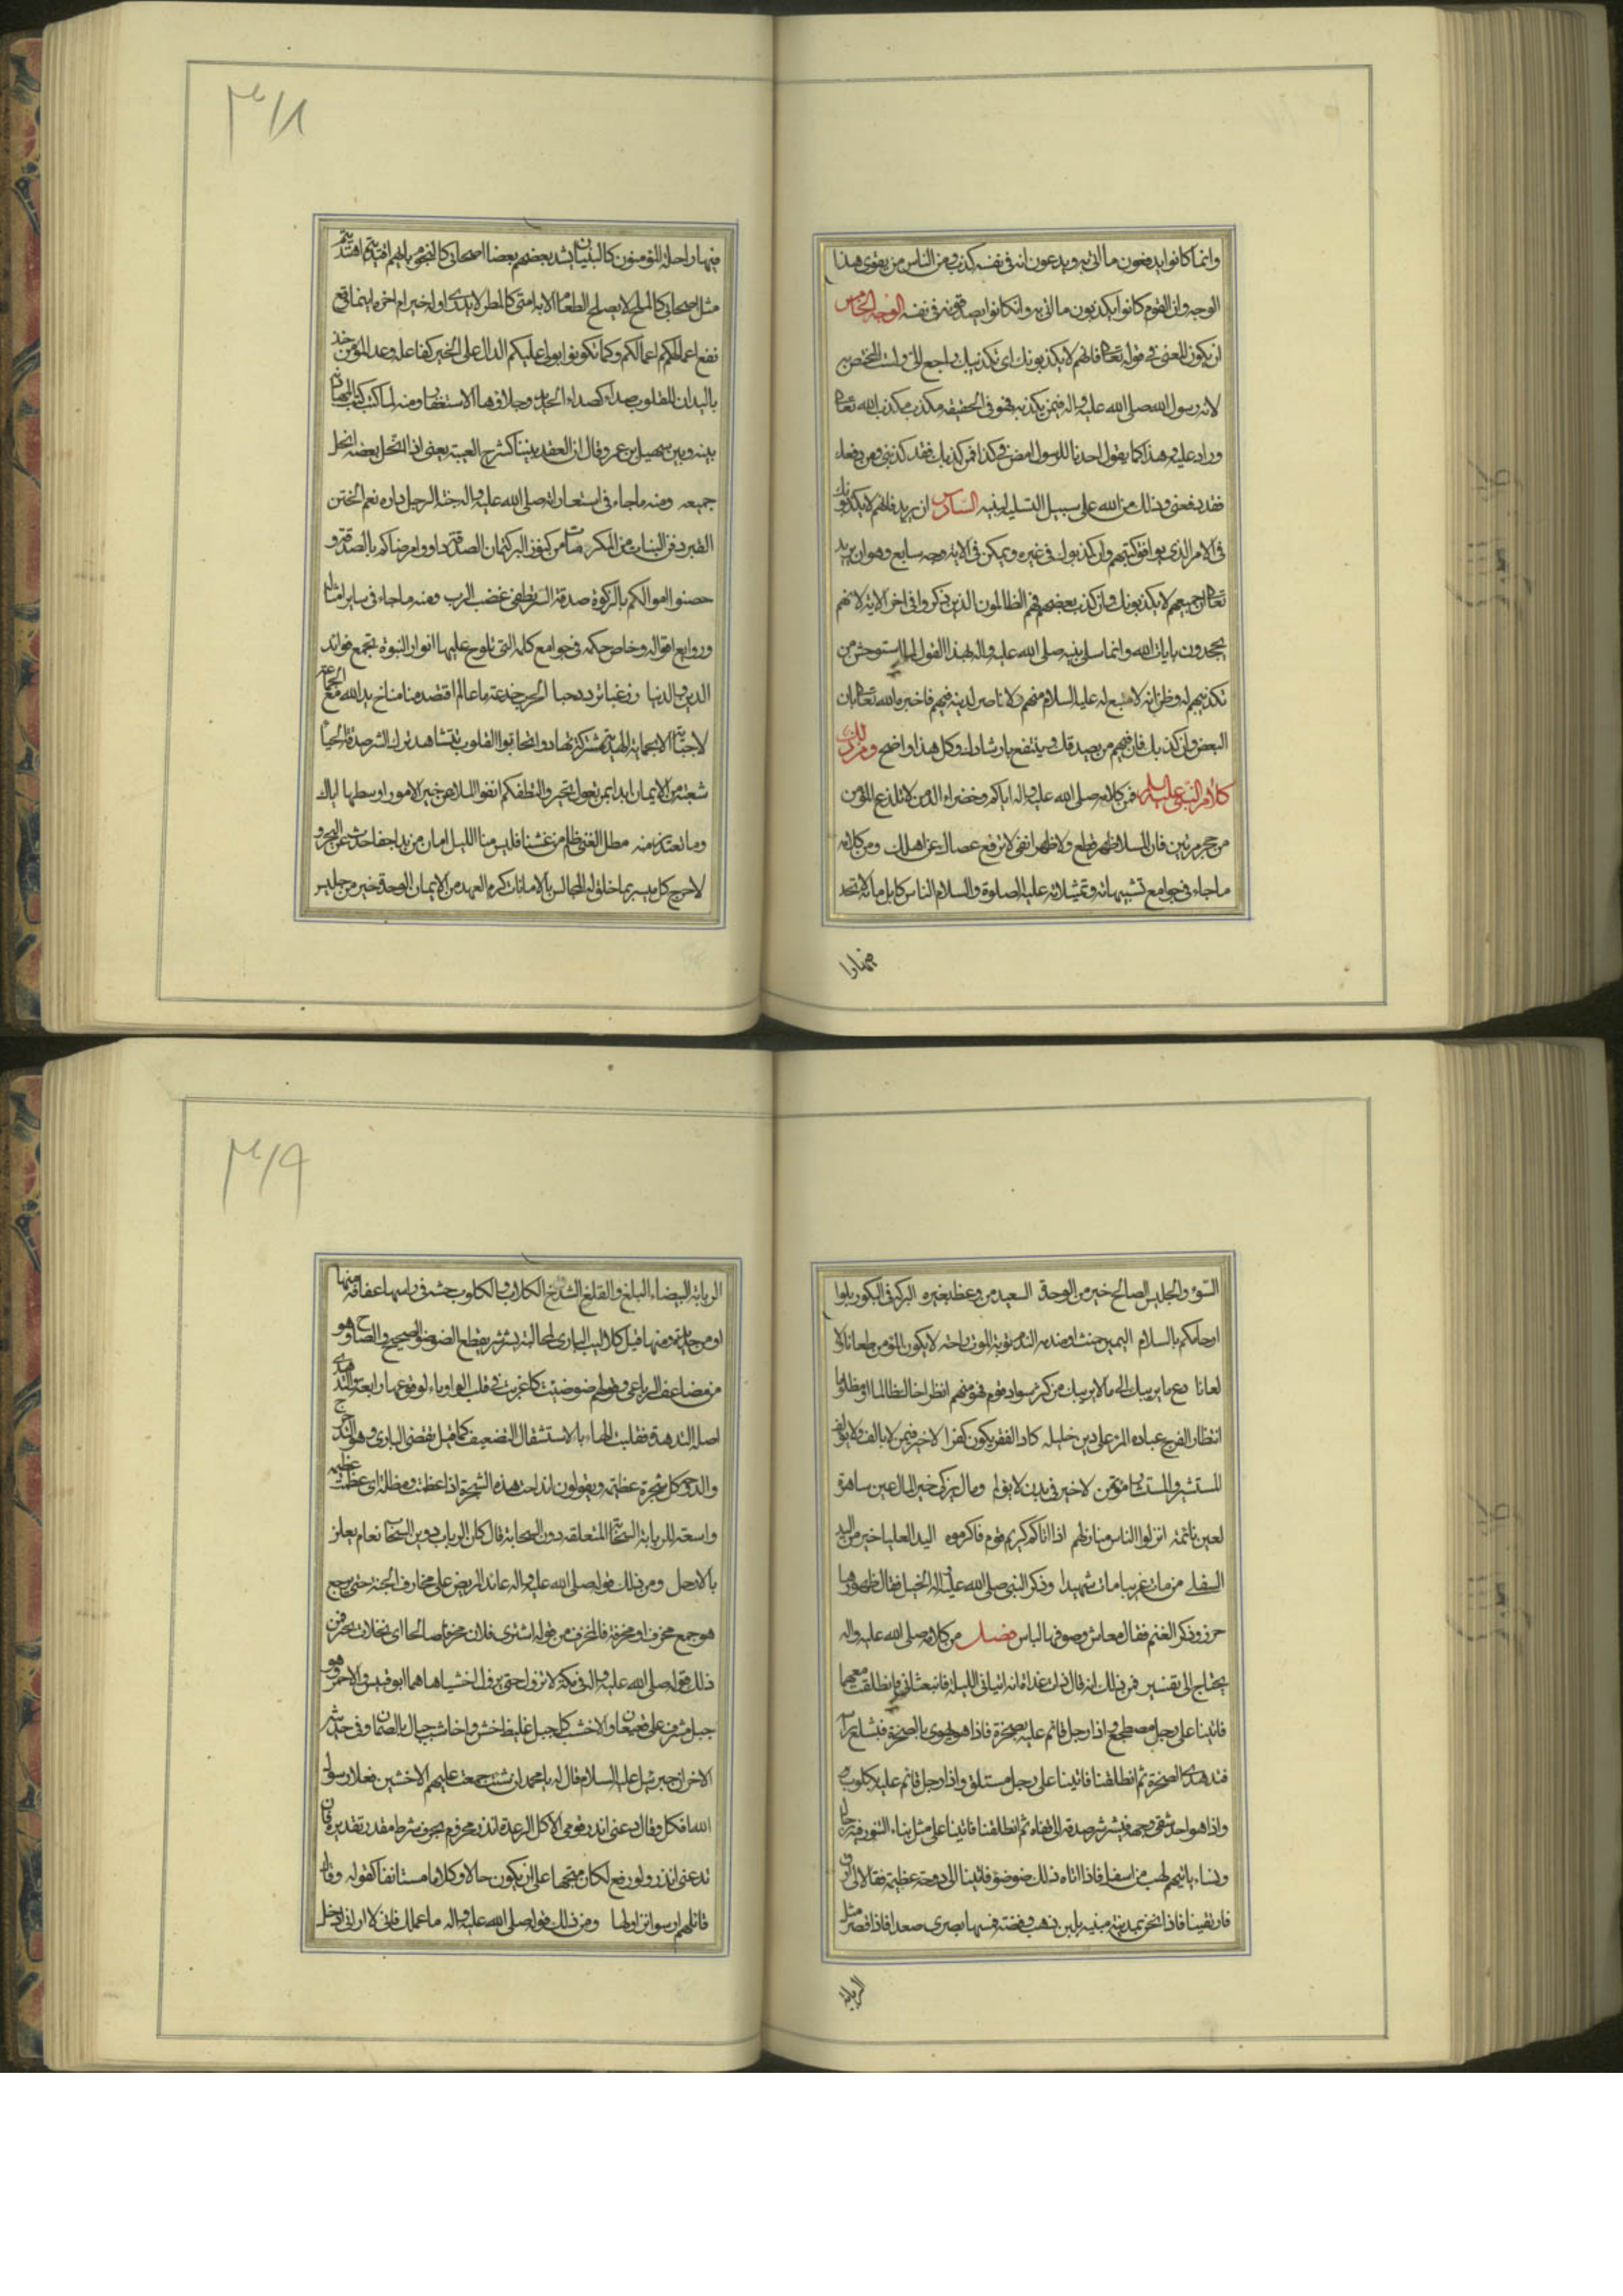 وانما كانوا يدفعون ما اتى به ويدعون انه فى نفسه كذب ومن الناس من يقوى هذا
الوجه وان القوم كانوا يكذبون ما اتى به وانكانوا يصدقونه فى نفسه الوجه الخامس
ان يكون المعنى فى قوله تعالى فانهم لا يكذبونك اى تكذيبك راجع الىّ ولست المختص به
لانه رسول الله صلى الله عليه واله فمن يكذبه فهو فى الحقيقه مكذب الله تعالى
وراد عليه وهذا كما يقول احدنا للرسول امض فى كذا فمن كذبك فقد كذبنى ومن دفعك
فقد دفعنى وذلك من الله على سبيل التسلية لنبيه السادس ان يريد فانهم لا يكذبونك
فى الامر الذى يوافق كتبهم وان كذبوك فى غيره ويمكن فى الاية وجه سابع وهو ان يريد
تعالى ان جميعهم لا يكذبونك وان كذب بعضهم فهم الظالمون الذين ذكروا فى اخر الاية لا نهم
يجحدون بايات الله وانما سلى نبيه صلى الله عليه واله بهذا القول لما استوحش من
تكذيبهم له وظن انه لا متبع له عليه السلام منهم ولا ناصر لدينه فيهم فاخبره الله تعالى بان
البعض وان كذبك فان فيهم من يصدقك ويتبعك وينتفع بارشادك وكل هذا واضح ومن ذلك
كلام النبى عليه السلم فمن كلامه صلى الله عليه واله اياكم وخضراء الدمن لا يلدغ المؤمن
من جحر مرتين فان المنبت لا ارضا قطع ولا ظهرا ابقى لا ترفع عصاك عن اهلك ومن كلامه
ما جاء فى جوامع تشبيهاته وتمثيلاته عليه الصلوة والسلام الناس كابل مائة لا تجد
فيها را
۳۱۸
فيها راحلة المؤمنون كالبنيان يشد بعضهم بعضا اصحابى كالنجوم بايهم اقتديتم اهتديتم
مثل اصحابى كالملح لا يصلح الطعام الا به امتى كالمطر لا يدرى اوله خير ام اخره اينما وقع
نفع اعمالكم اعمالكم وكما تكونوا يولى عليكم الدال على الخير كفاعله وعد المؤمن
ان للقلوب صداء كصداء الحديد وجلاؤها الاستغفار ومنه لما كتب كتاب
بينه وبين سهيل بن عمرو قال ان العقد بيننا كشرج العيبة يعنى اذا انحل بعضه انحل
جميعه ومنه ما جاء فى استعاراته صلى الله عليه واله جنة الرجل داره نعم الختن
القبر دفن البنات من المكرمات من كنوز البر كتمان الصدقة داووا مرضاكم بالصدقة و
حصنوا اموالكم بالزكوة صدقة السر تطفئ غضب الرب ومنه ما جاء فى ساير امثاله
وروايع اقواله وخاص حكمه فى جوامع كلمه التى تلوح عليها انوار النبوة وتجمع فوائد
الدين والدنيا زر غبا تزدد حبا الحرب خدعة ما عال من اقتصد منا مناخ يد الله مع الجماعة
شعبة من الايمان ابدا بمن تعول تخيروا لنطفكم خير الامور اوسطها اياك
وما يعتذر منه مطل الغنى ظلم من غشنا فليس منا الليل امان من بدا جفا حدث عن البحر و
لا حرج كل ميسر لما خلق له المجالس بالامانات كرم العهد من الايمان الوحدة خير من جليس
السوء والجليس الصالح خير من الوحدة السعيد من وعظ بغيره البركة فى البكور بلوا
ارحامكم بالسلام اليمين حنث او مندمة الندم توبة الموت راحة لا يكون المؤمن طعانا ولا
لعانا دع ما يريبك الى ما لا يريبك من كثر سواد قوم فهو منهم انظر اخاك ظالما او مظلوما
انتظار الفرج عبادة المرء على دين خليله كاد الفقر يكون كفرا لا خير فيمن لا يالف ولا يؤلف
المستشير والمستشار مؤتمن لا خير فى بدن لا يؤلم ومال لا يزكى خير المال عين ساهرة
لعين نائمة انزلوا الناس منازلهم اذا اتاكم كريم قوم فاكرموه اليد العليا خير من اليد
السفلى من مات غريبا مات شهيدا وذكر النبى صلى الله عليه واله الخيل فقال ظهورها
حرز وذكر الغنم فقال معاش وصوفها لباس فصل من كلامه صلى الله عليه واله
يحتاج الى تفسير فمن ذلك انه قال ذات غداة انه اتيانى الليلة فانبعثانى فانطلقت معهما
فاتينا على رجل مضطجع واذا رجل قائم عليه بصخرة فاذا هو يهوى بالصخرة فيثلغ راسه
فتدهدى الصخرة ثم انطلقنا فاتينا على رجل مستلق واذا رجل قائم عليه بكلوب
واذا هو ياتى احد شقى وجهه فيشرشر شدقه الى قفاه ثم انطلقنا فاتينا على مثل بناء التنور فيه رجال
ونساء ياتيهم لهب من اسفل فاذا اتاه ذلك ضوضوا فاتينا الى دوحة عظيمة فقالا لى ارق
فارتقينا فاذا نحن بمدينة مبنية بلبن ذهب وفضة فسما بصرى صعدا فاذا قصر مثل
الربابة
۳۱۹
الربابة البيضاء البلغ والفلغ الشدخ الكلاب والكلوب خشبة فى راسها عقافة منها
او من حديد ومنها قيل كلاليب البازى لمخالبه يشرشر يقطع الضوضو الصحيح والصياح وهو
من مضاعف الرباعى وقولهم ضوضيت كاغزيت فى قلب الواو ياء لوقوعها رابعة والتدهدى
اصله التدهده فقلبت الهاء ياء لاستثقال التضعيف كما قيل تقضى البازى وهو التدحرج
والدوح كل شجرة عظيمة ويقولون اندلحت هذه الشجرة اذا عظمت ومظلة اى عظيمة
واسعة الربابة السحابة المتعلقة دون السحابة قال كان الرباب دوين السحاب نعام يعلق
بالارجل ومن ذلك قوله صلى الله عليه واله عائد المريض على مخارف الجنة حتى يرجع
هو جمع مخرف او مخرفة فالمخرف من قوله اشترى فلان مخرفا صالحا اى نخلات يخترفن
ذلك قوله صلى الله عليه واله فى مكة لا تزول حتى يزول اخشباها هما ابو قبيس والاحمر وهو
جبل مشرف على قعيقعان والاخشب كل جبل غليظ خشن واخاشب جبال بالصمان وفى حديث
الاخر ان جبرئيل عليه السلام قال له يا محمد ان شئت جمعت عليهم الاخشبين فعلا رسول
الله افكل وقال دعنى انذر قومى الافكل الرعدة انذر مجزوم بحرف شرط مقدر تقديره فان
تدعنى انذر ولو رفع لكان متجها على ان يكون حالا او كلاما مستانفا كقوله وقال
قائلهم ارسوا نزاولها ومن ذلك قوله صلى الله عليه واله ما عملك فانى لا ارانى ادخل